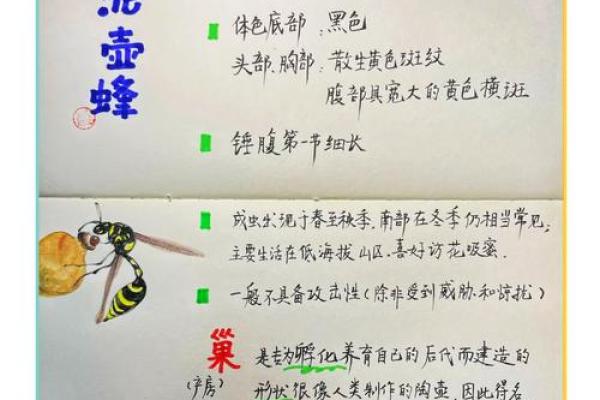 泥壶蜂
体色底部：黑色
头部、胸部：散生黄色斑纹
腹部具宽大的黄色横斑
锤腹第一节细长
成虫 于春至秋季，南部在冬季仍相当常见；
主要生活在低海拔山区，喜好访花吸蜜．
一般不具备攻击性（除非受到威胁和惊扰）
巢 是专为孵化养育自己的后代而建造的
（产房） 形状很像人类制作的陶壶，因此得名